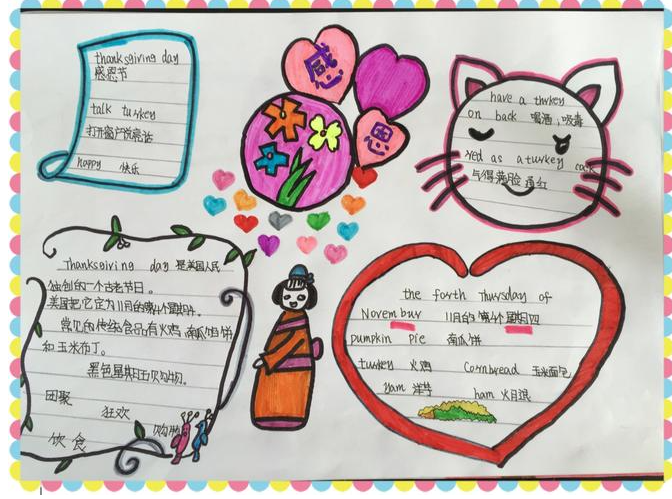 thanksgiving day
感恩节
talk turkey
打开窗户说亮话
happy 快乐
感
恩
have a thrkey
on back 喝酒,吸毒
red as a turkey cock
气得满脸通红
Thanksgiving day 是美国人民
独创的一个古老节日。
美国把它定为11月的第4个星期四。
常见的传统食品有火鸡,南瓜馅饼
和玉米布丁。
黑色星期五购物。
团聚
狂欢
购物
饮食
the forth Thursday of
Novembur 11月的第4个星期四
pumpkin pie 南瓜饼
turkey 火鸡 Cornbread 玉米面包
yam 洋芋 ham 火腿